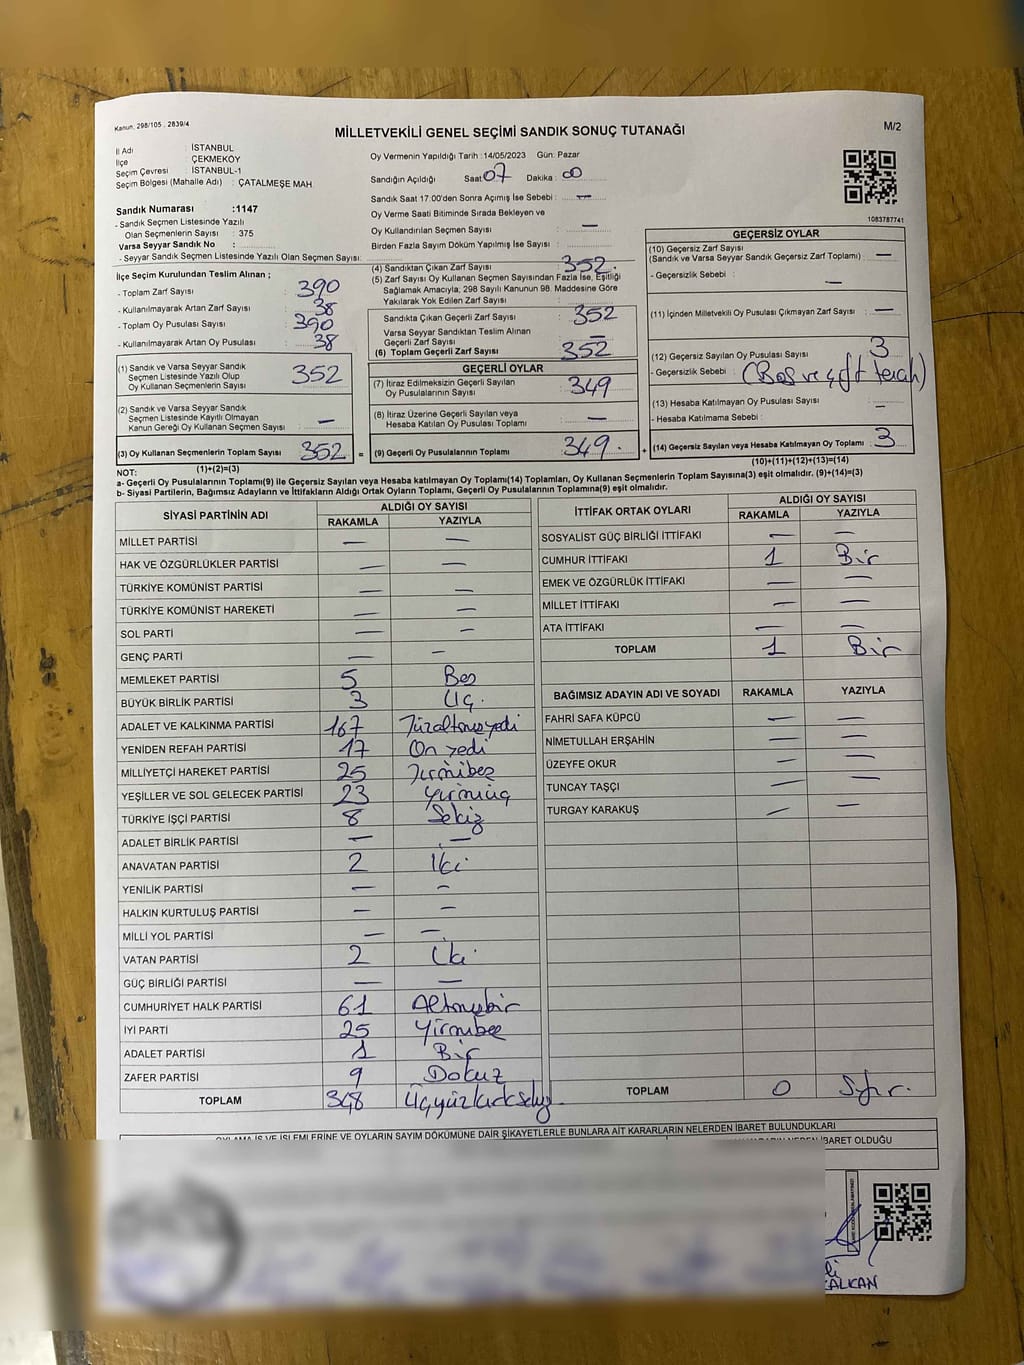 Kanun, 298/105 : 2839/4
MİLLETVEKİLİ GENEL SEÇİMİ SANDIK SONUÇ TUTANAĞI
M/2
İl Adı : İSTANBUL
İlçe ÇEKMEKÖY
Seçim Çevresi : İSTANBUL-1
Seçim Bölgesi (Mahalle Adı) : ÇATALMEŞE MAH.
Oy Vermenin Yapıldığı Tarih :14/05/2023 Gün: Pazar
Sandığın Açıldığı Saat 07 Dakika : 00
Sandık Saat 17:00'den Sonra Açımış İse Sebebi : —
Oy Verme Saati Bitiminde Sırada Bekleyen ve
Oy Kullandırılan Seçmen Sayısı : —
Birden Fazla Sayım Döküm Yapılmış İse Sayısı :
1083787741
Sandık Numarası :1147
- Sandık Seçmen Listesinde Yazılı
Olan Seçmenlerin Sayısı : 375
Varsa Seyyar Sandık No :
- Seyyar Sandık Seçmen Listesinde Yazılı Olan Seçmen Sayısı:
İlçe Seçim Kurulundan Teslim Alınan ;
- Toplam Zarf Sayısı : 390
- Kullanılmayarak Artan Zarf Sayısı : 38
- Toplam Oy Pusulası Sayısı : 390
- Kullanılmayarak Artan Oy Pusulası : 38
(1) Sandık ve Varsa Seyyar Sandık
Seçmen Listesinde Yazılı Olup
Oy Kullanan Seçmenlerin Sayısı : 352
(2) Sandık ve Varsa Seyyar Sandık
Seçmen Listesinde Kayıtlı Olmayan
Kanun Gereği Oy Kullanan Seçmen Sayısı : —
(3) Oy Kullanan Seçmenlerin Toplam Sayısı : 352 =
(4) Sandıktan Çıkan Zarf Sayısı : 352.
(5) Zarf Sayısı Oy Kullanan Seçmen Sayısından Fazla İse, Eşitliği
Sağlamak Amacıyla; 298 Sayılı Kanunun 98. Maddesine Göre
Yakılarak Yok Edilen Zarf Sayısı :
Sandıkta Çıkan Geçerli Zarf Sayısı : 352
Varsa Seyyar Sandıktan Teslim Alınan
Geçerli Zarf Sayısı : —
(6) Toplam Geçerli Zarf Sayısı : 352
GEÇERLİ OYLAR
(7) İtiraz Edilmeksizin Geçerli Sayılan
Oy Pusulalarının Sayısı : 349
(8) İtiraz Üzerine Geçerli Sayılan veya
Hesaba Katılan Oy Pusulası Toplamı : —
(9) Geçerli Oy Pusulalarının Toplamı : 349. +
GEÇERSİZ OYLAR
(10) Geçersiz Zarf Sayısı
(Sandık ve Varsa Seyyar Sandık Geçersiz Zarf Toplamı) : —
- Geçersizlik Sebebi : —
(11) İçinden Milletvekili Oy Pusulası Çıkmayan Zarf Sayısı : —
(12) Geçersiz Sayılan Oy Pusulası Sayısı : 3
- Geçersizlik Sebebi : (Boş ve çift tercih)
(13) Hesaba Katılmayan Oy Pusulası Sayısı : –
- Hesaba Katılmama Sebebi :
(14) Geçersiz Sayılan veya Hesaba Katılmayan Oy Toplamı : 3
NOT: (1)+(2)=(3) (10)+(11)+(12)+(13)=(14)
a- Geçerli Oy Pusulalarının Toplamı(9) ile Geçersiz Sayılan veya Hesaba katılmayan Oy Toplamı(14) Toplamları, Oy Kullanan Seçmenlerin Toplam Sayısına(3) eşit olmalıdır. (9)+(14)=(3)
b- Siyasi Partilerin, Bağımsız Adayların ve İttifakların Aldığı Ortak Oyların Toplamı, Geçerli Oy Pusulalarının Toplamına(9) eşit olmalıdır.
SİYASİ PARTİNİN ADI ALDIĞI OY SAYISI
RAKAMLA YAZIYLA
MİLLET PARTİSİ — —
HAK VE ÖZGÜRLÜKLER PARTİSİ — —
TÜRKİYE KOMÜNİST PARTİSİ — —
TÜRKİYE KOMÜNİST HAREKETİ — —
SOL PARTİ — —
GENÇ PARTİ — —
MEMLEKET PARTİSİ 5 Beş
BÜYÜK BİRLİK PARTİSİ 3 Üç.
ADALET VE KALKINMA PARTİSİ 167 Yüzaltmışyedi
YENİDEN REFAH PARTİSİ 17 On yedi
MİLLİYETÇİ HAREKET PARTİSİ 25 Yirmibeş
YEŞİLLER VE SOL GELECEK PARTİSİ 23 Yirmiüç
TÜRKİYE İŞÇİ PARTİSİ 8 Sekiz
ADALET BİRLİK PARTİSİ — —
ANAVATAN PARTİSİ 2 İki
YENİLİK PARTİSİ — —
HALKIN KURTULUŞ PARTİSİ — —
MİLLİ YOL PARTİSİ — —
VATAN PARTİSİ 2 İki
GÜÇ BİRLİĞİ PARTİSİ — —
CUMHURİYET HALK PARTİSİ 61 Altmışbir
İYİ PARTİ 25 Yirmibeş
ADALET PARTİSİ 1 Bir
ZAFER PARTİSİ 9 Dokuz
TOPLAM 348 Üçyüzkırksekiz
İTTİFAK ORTAK OYLARI ALDIĞI OY SAYISI
RAKAMLA YAZIYLA
SOSYALİST GÜÇ BİRLİĞİ İTTİFAKI — —
CUMHUR İTTİFAKI 1 Bir
EMEK VE ÖZGÜRLÜK İTTİFAKI — —
MİLLET İTTİFAKI — —
ATA İTTİFAKI — —
TOPLAM 1 Bir
BAĞIMSIZ ADAYIN ADI VE SOYADI RAKAMLA YAZIYLA
FAHRİ SAFA KÜPCÜ — —
NİMETULLAH ERŞAHİN — —
ÜZEYFE OKUR — —
TUNCAY TAŞÇI — —
TURGAY KARAKUŞ — —
TOPLAM 0 Sıfır.
OYLAMA İŞ VE İŞLEMLERİNE VE OYLARIN SAYIM DÖKÜMÜNE DAİR ŞİKAYETLERLE BUNLARA AİT KARARLARIN NELERDEN İBARET BULUNDUKLARI
İBARET OLDUĞU